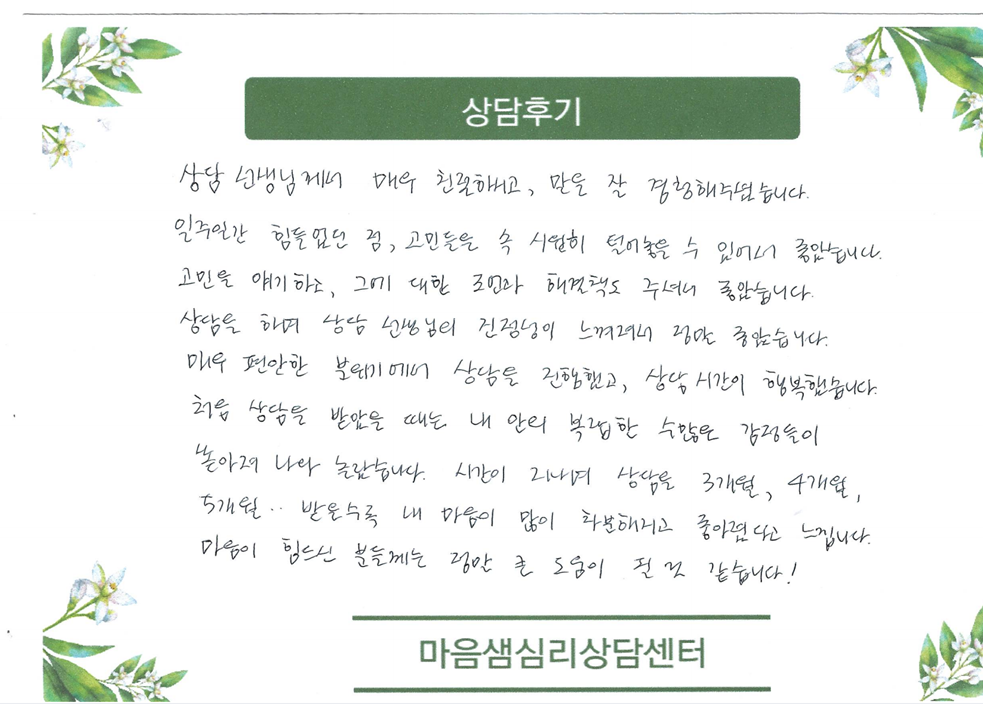 상담후기
상담 선생님께서 매우 친절하시고, 말을 잘 경청해주셨습니다.
일주일간 힘들었던 점, 고민들을 속 시원히 털어놓을 수 있어서 좋았습니다.
고민을 얘기하고, 그에 대한 조언과 해결책도 주셔서 좋았습니다.
상담을 하며 상담 선생님의 진정성이 느껴져서 정말 좋았습니다.
매우 편안한 분위기에서 상담을 진행했고, 상담 시간이 행복했습니다.
처음 상담을 받았을 때는 내 안의 복잡한 수많은 감정들이
쏟아져 나와 놀랐습니다. 시간이 지나며 상담을 3개월, 4개월,
5개월.. 받을수록 내 마음이 많이 차분해지고 좋아졌다고 느낍니다.
마음이 힘드신 분들께는 정말 큰 도움이 될 것 같습니다!
마음샘심리상담센터